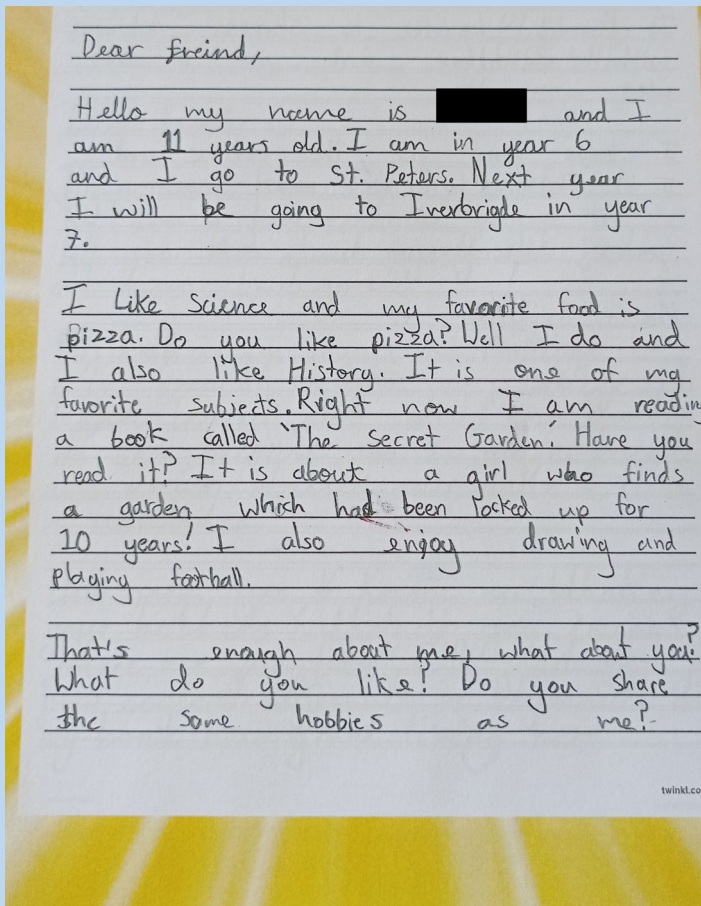 Dear freind,
Hello my name is and I
am 11 years old. I am in year 6
and I go to St. Peters. Next year
I will be going to Iverbrigde in year
7.
I Like Science and my favorite food is
pizza. Do you like pizza? Well I do and
I also like History. It is one of my
favorite subjects. Right now I am readin
a book called 'The Secret Garden'. Have you
read it? It is about a girl who finds
a garden which had been locked up for
10 years! I also engoy drawing and
playing football.
That's enough about me, what about you?
What do you like? Do you share
the same hobbies as me?
twinkl.co